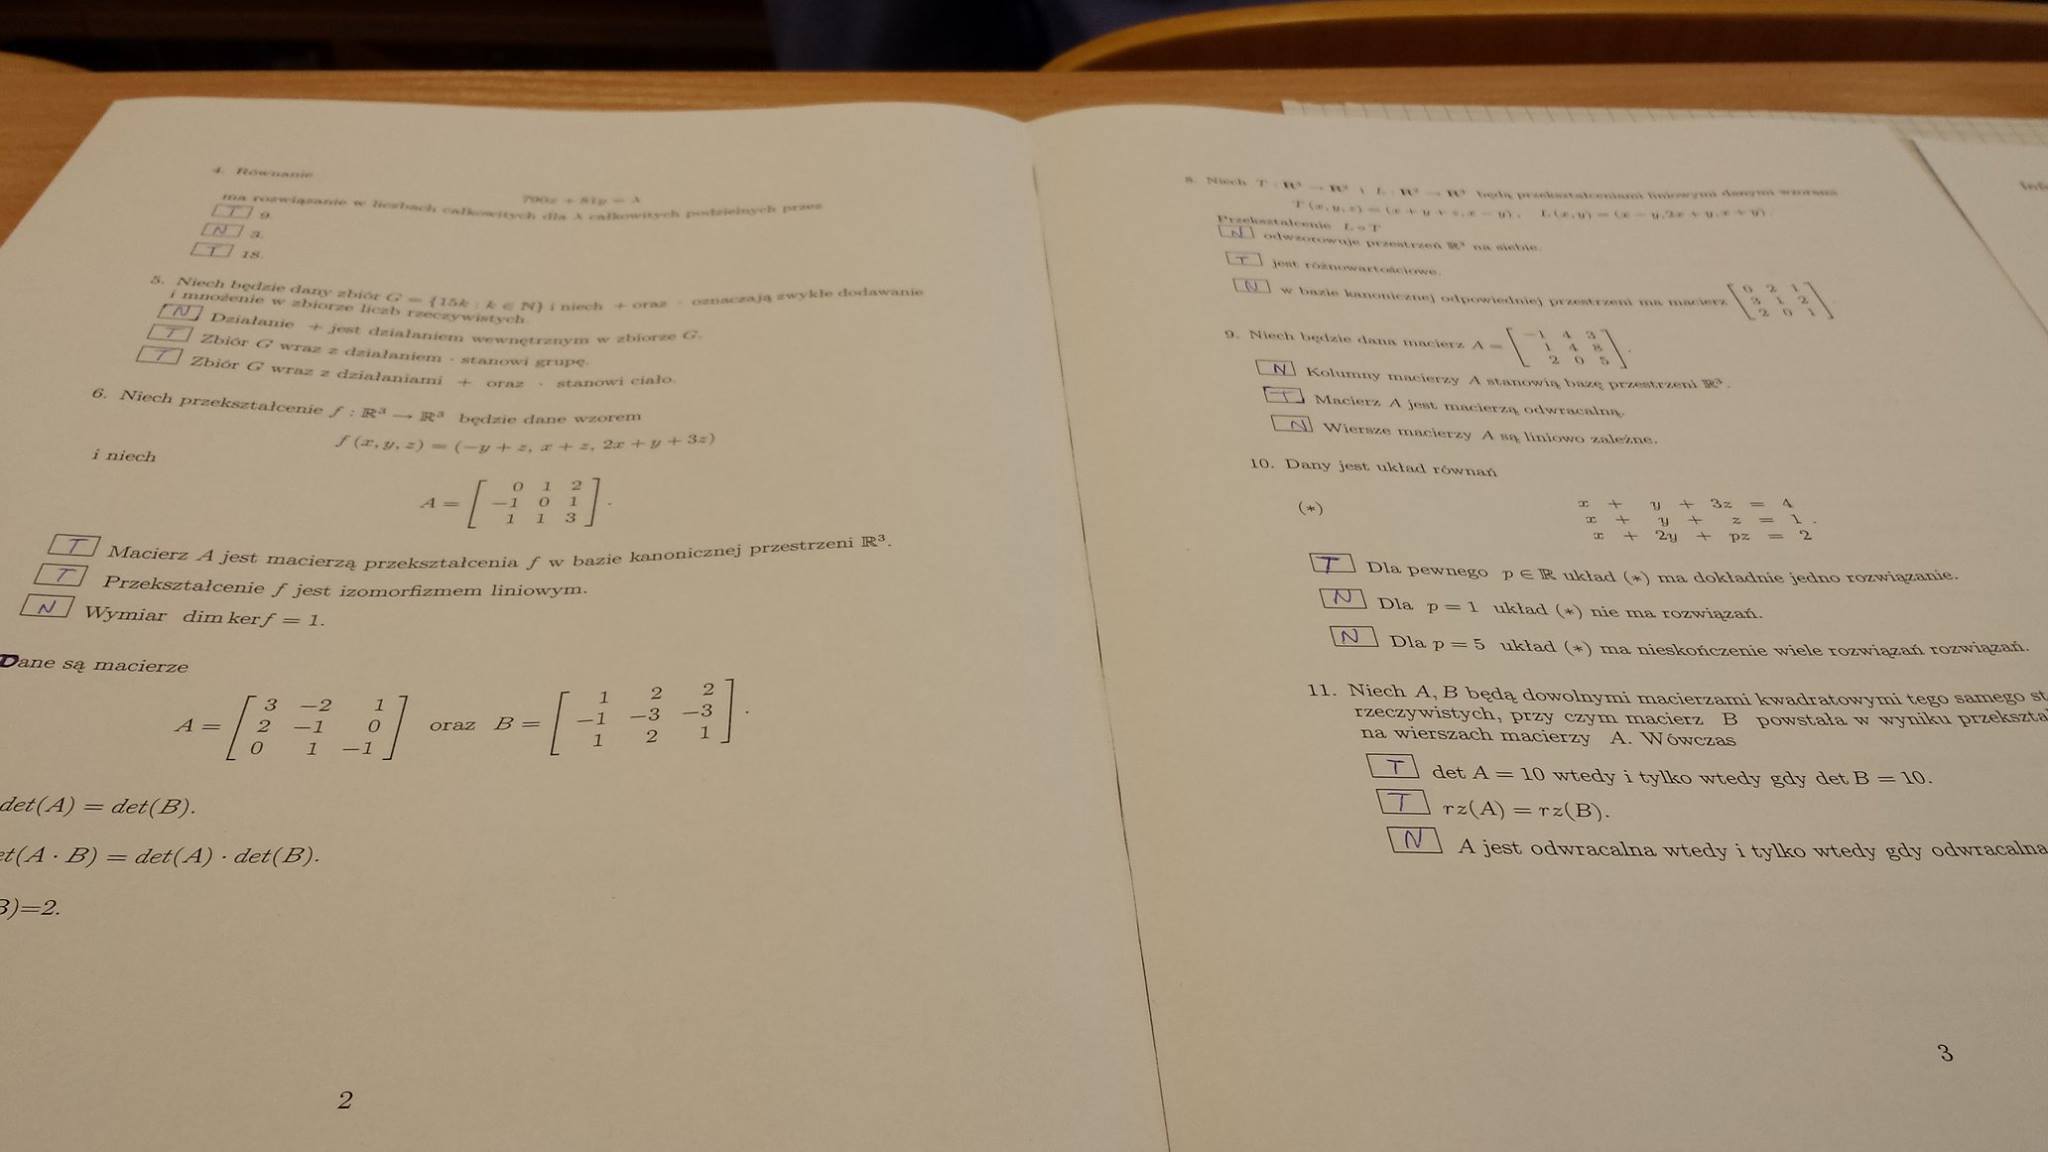 4. Równanie
790x + 81y = λ
ma rozwiązanie w liczbach całkowitych dla λ całkowitych podzielnych przez
T 9.
N 3.
T 18.
5. Niech będzie dany zbiór G = {15k : k ∈ N} i niech + oraz · oznaczają zwykłe dodawanie
i mnożenie w zbiorze liczb rzeczywistych.
N Działanie + jest działaniem wewnętrznym w zbiorze G.
T Zbiór G wraz z działaniem · stanowi grupę.
T Zbiór G wraz z działaniami + oraz · stanowi ciało.
6. Niech przekształcenie f : ℝ³ → ℝ³ będzie dane wzorem
f (x, y, z) = (−y + z, x + z, 2x + y + 3z)
i niech
A = [ 0 1 2
−1 0 1
1 1 3 ] .
T Macierz A jest macierzą przekształcenia f w bazie kanonicznej przestrzeni ℝ³.
T Przekształcenie f jest izomorfizmem liniowym.
N Wymiar dim ker f = 1.
Dane są macierze
A = [ 3 −2 1
2 −1 0
0 1 −1 ] oraz B = [ 1 2 2
−1 −3 −3
1 2 1 ] .
det(A) = det(B).
et(A · B) = det(A) · det(B).
B)=2.
2
8. Niech T : R³ → R² i L : R² → R³ będą przekształceniami liniowymi danymi wzorami
T (x, y, z) = (x + y + z, x − y), L (x, y) = (x − y, 2x + y, x + y).
Przekształcenie L ∘ T
N odwzorowuje przestrzeń ℝ³ na siebie.
T jest różnowartościowe.
N w bazie kanonicznej odpowiedniej przestrzeni ma macierz [ 0 2 1
3 1 2
2 0 1 ] .
9. Niech będzie dana macierz A = [ −1 4 3
1 4 8
2 0 5 ] .
N Kolumny macierzy A stanowią bazę przestrzeni ℝ³.
T Macierz A jest macierzą odwracalną.
N Wiersze macierzy A są liniowo zależne.
10. Dany jest układ równań
(∗) x + y + 3z = 4
x + y + z = 1 .
x + 2y + pz = 2
T Dla pewnego p ∈ ℝ układ (∗) ma dokładnie jedno rozwiązanie.
N Dla p = 1 układ (∗) nie ma rozwiązań.
N Dla p = 5 układ (∗) ma nieskończenie wiele rozwiązań rozwiązań.
11. Niech A, B będą dowolnymi macierzami kwadratowymi tego samego st
rzeczywistych, przy czym macierz B powstała w wyniku przekształ
na wierszach macierzy A. Wówczas
T det A = 10 wtedy i tylko wtedy gdy det B = 10.
T rz(A) = rz(B).
N A jest odwracalna wtedy i tylko wtedy gdy odwracalna
3